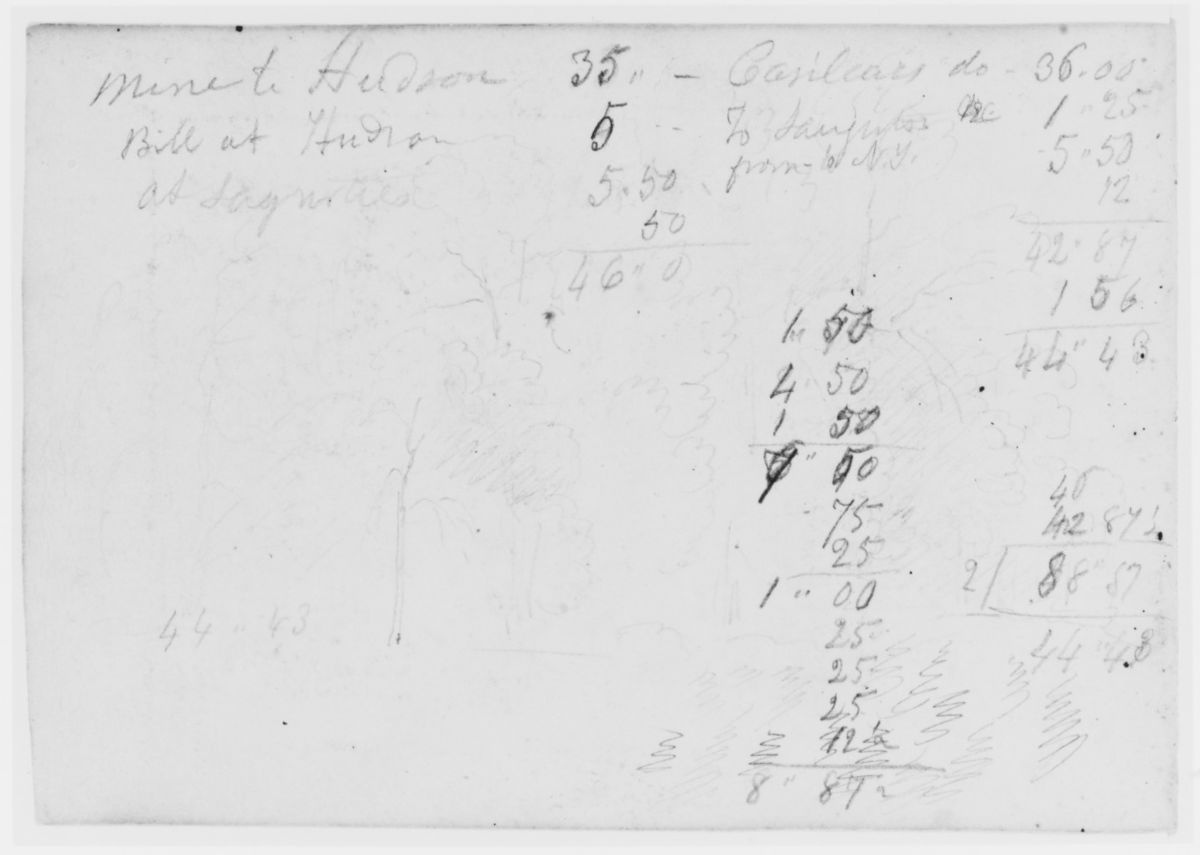 Mine to Hudson 35 " — Casilears do - 36.00
Bill at Hudson 5 - To Saugerties &c 1 " 25
from - to N.Y. 5 " 50
at Sagerties 5.50 12
50 42 " 87
46 " 0 1 56
44 " 43
1 " 50
4 50
1 50
" 50
75
25
1 " 00
25
25
25
12½
8 " 87½
46
42 87½
2 / 88 " 87
44 " 43
44 " 43